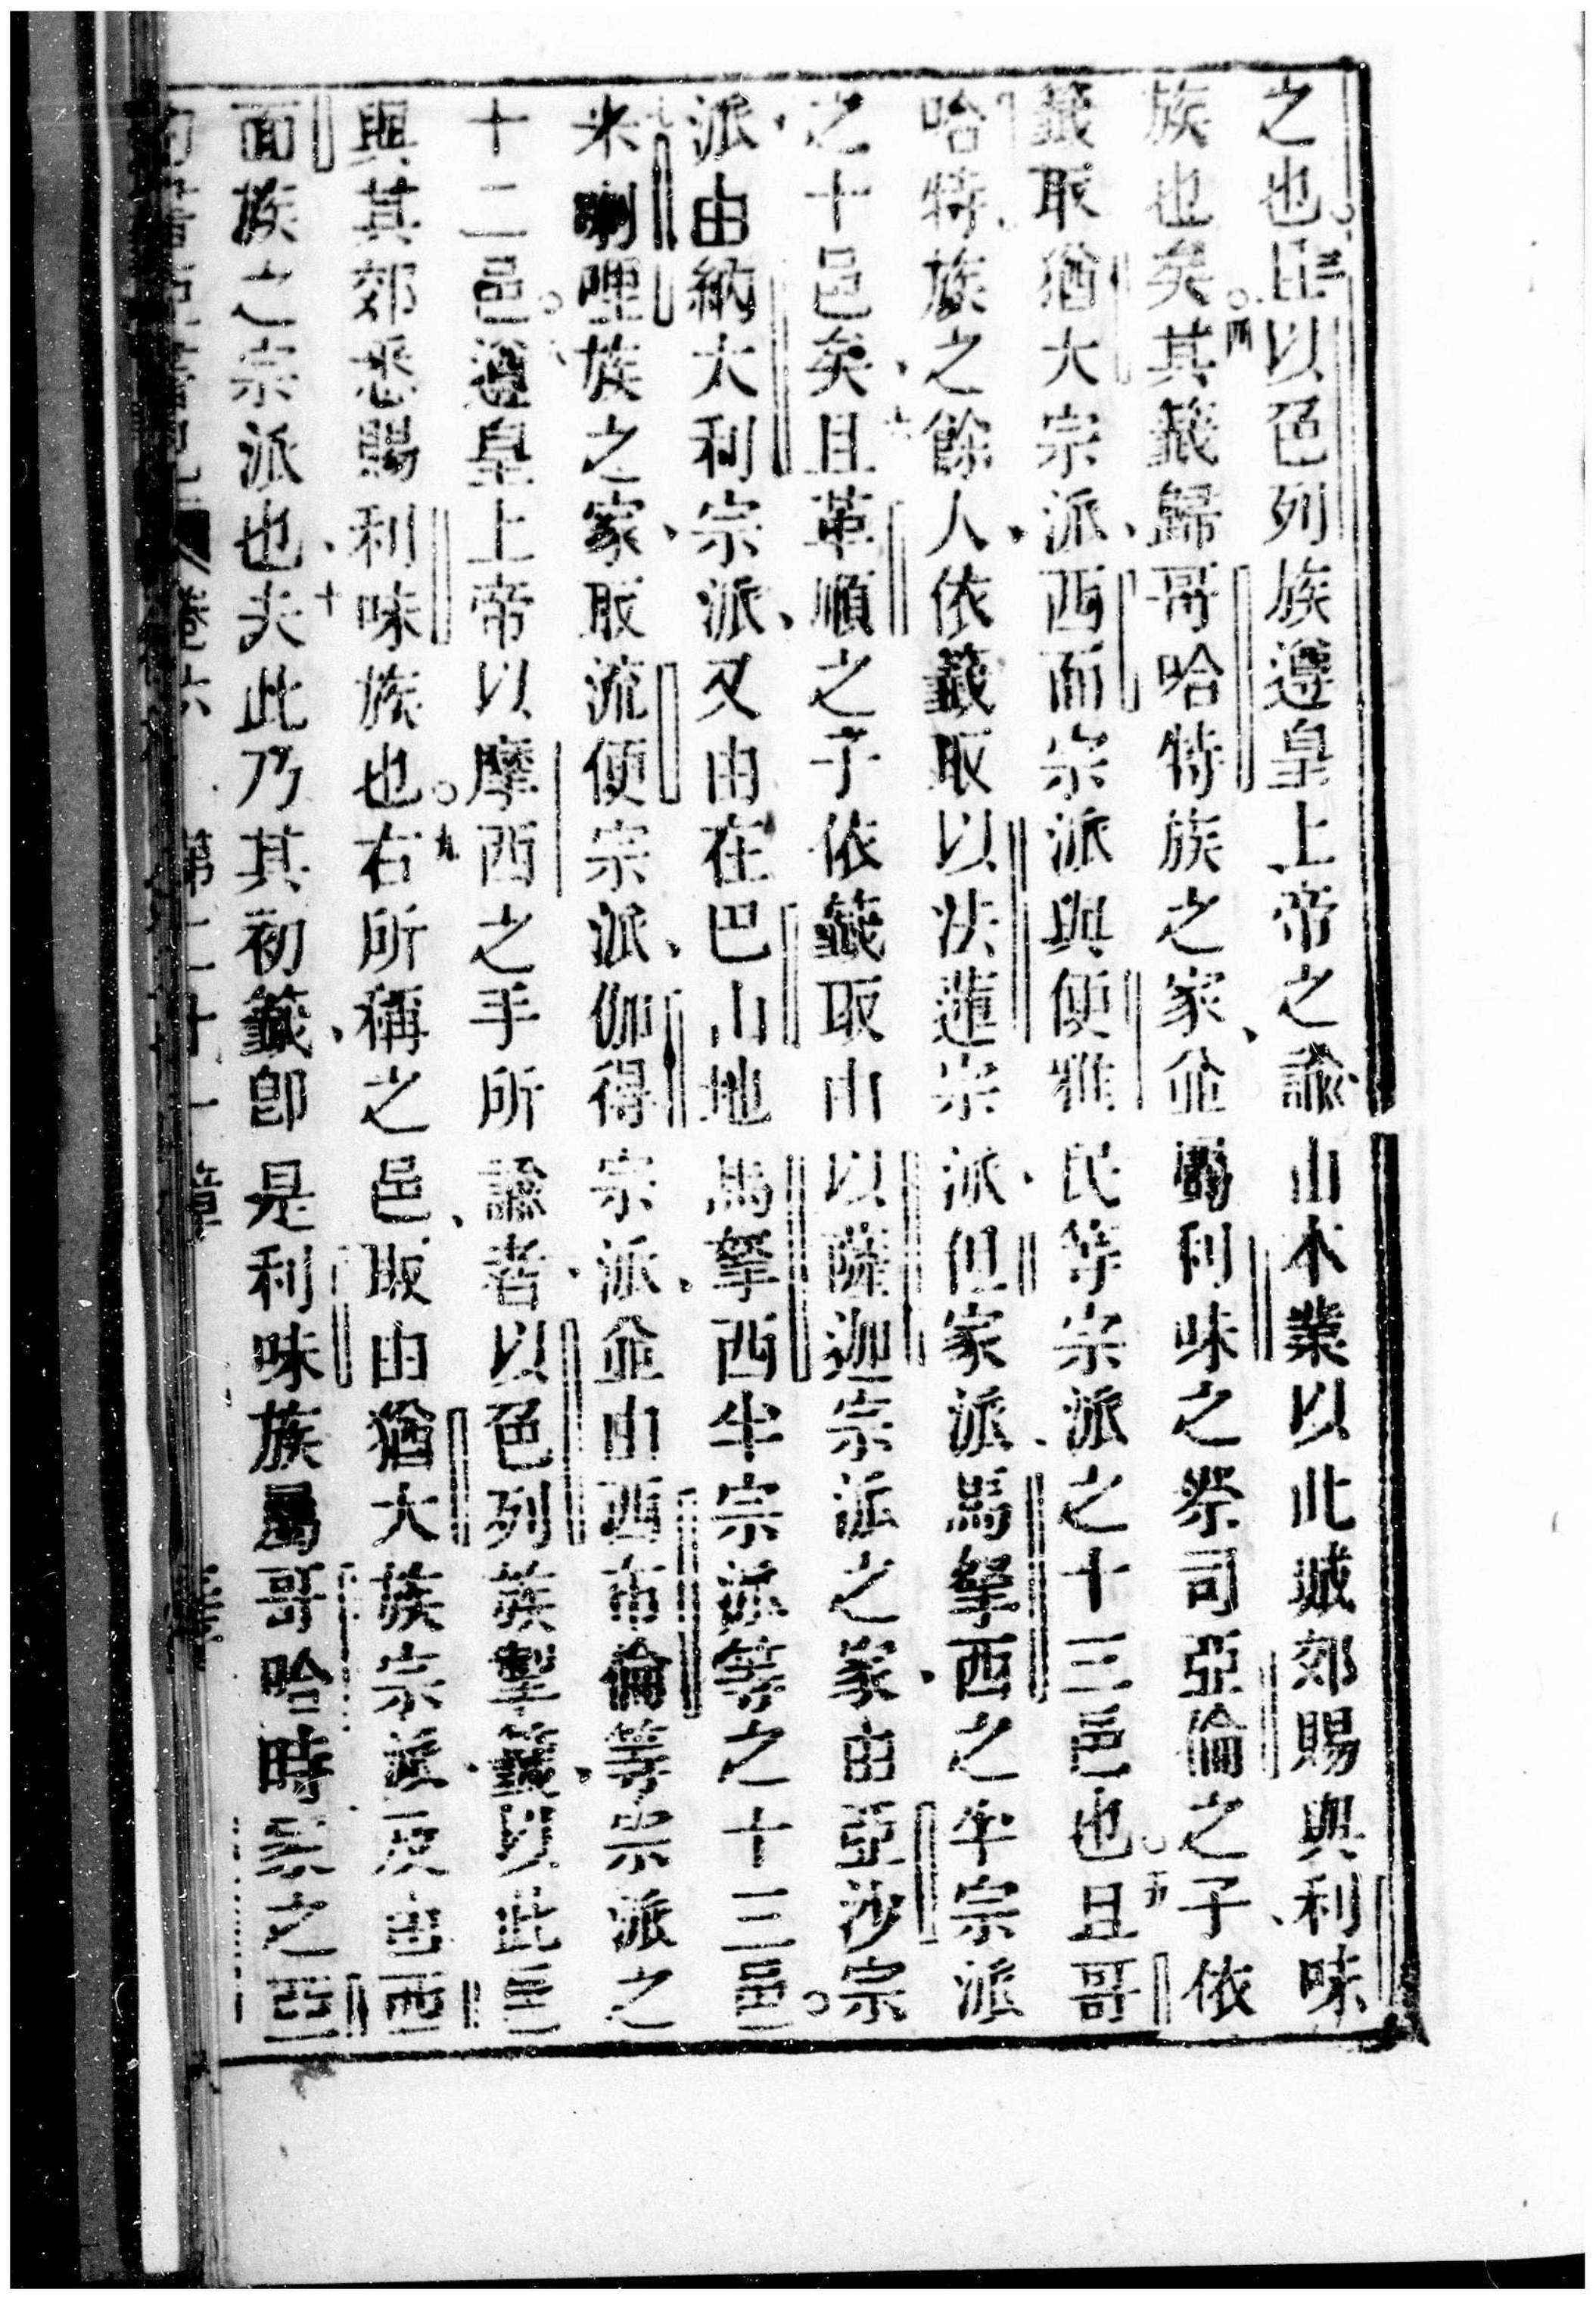 之也。三以色列族遵皇上帝之諭、由本業以此城郊賜與利味
族也矣。四其籤歸哥哈特族之家、並為利味之祭司亞倫之子、依
籤取猶大宗派、西面宗派與便雅民等宗派之十三邑也。五且哥
哈特族之餘人、依籤取以法蓮宗派、但家派、馬拿西之半宗派
之十邑矣、六且革順之子依籤取由以薩迦宗派之家、由亞沙宗
派、由納大利宗派、又由在巴山地馬拿西半宗派等之十三邑。
七米喇哩族之家、取流便宗派、伽得宗派、並由西布倫等宗派之
十二邑。八遵皇上帝以摩西之手所諭者、以色列族掣籤、以此邑
與其郊悉賜利味族也。九右所稱之邑、取由猶大族宗派、及由西
面族之宗派也、十夫此乃其初籤、即是利味族屬哥哈時家之亞
卷六 第二十一章